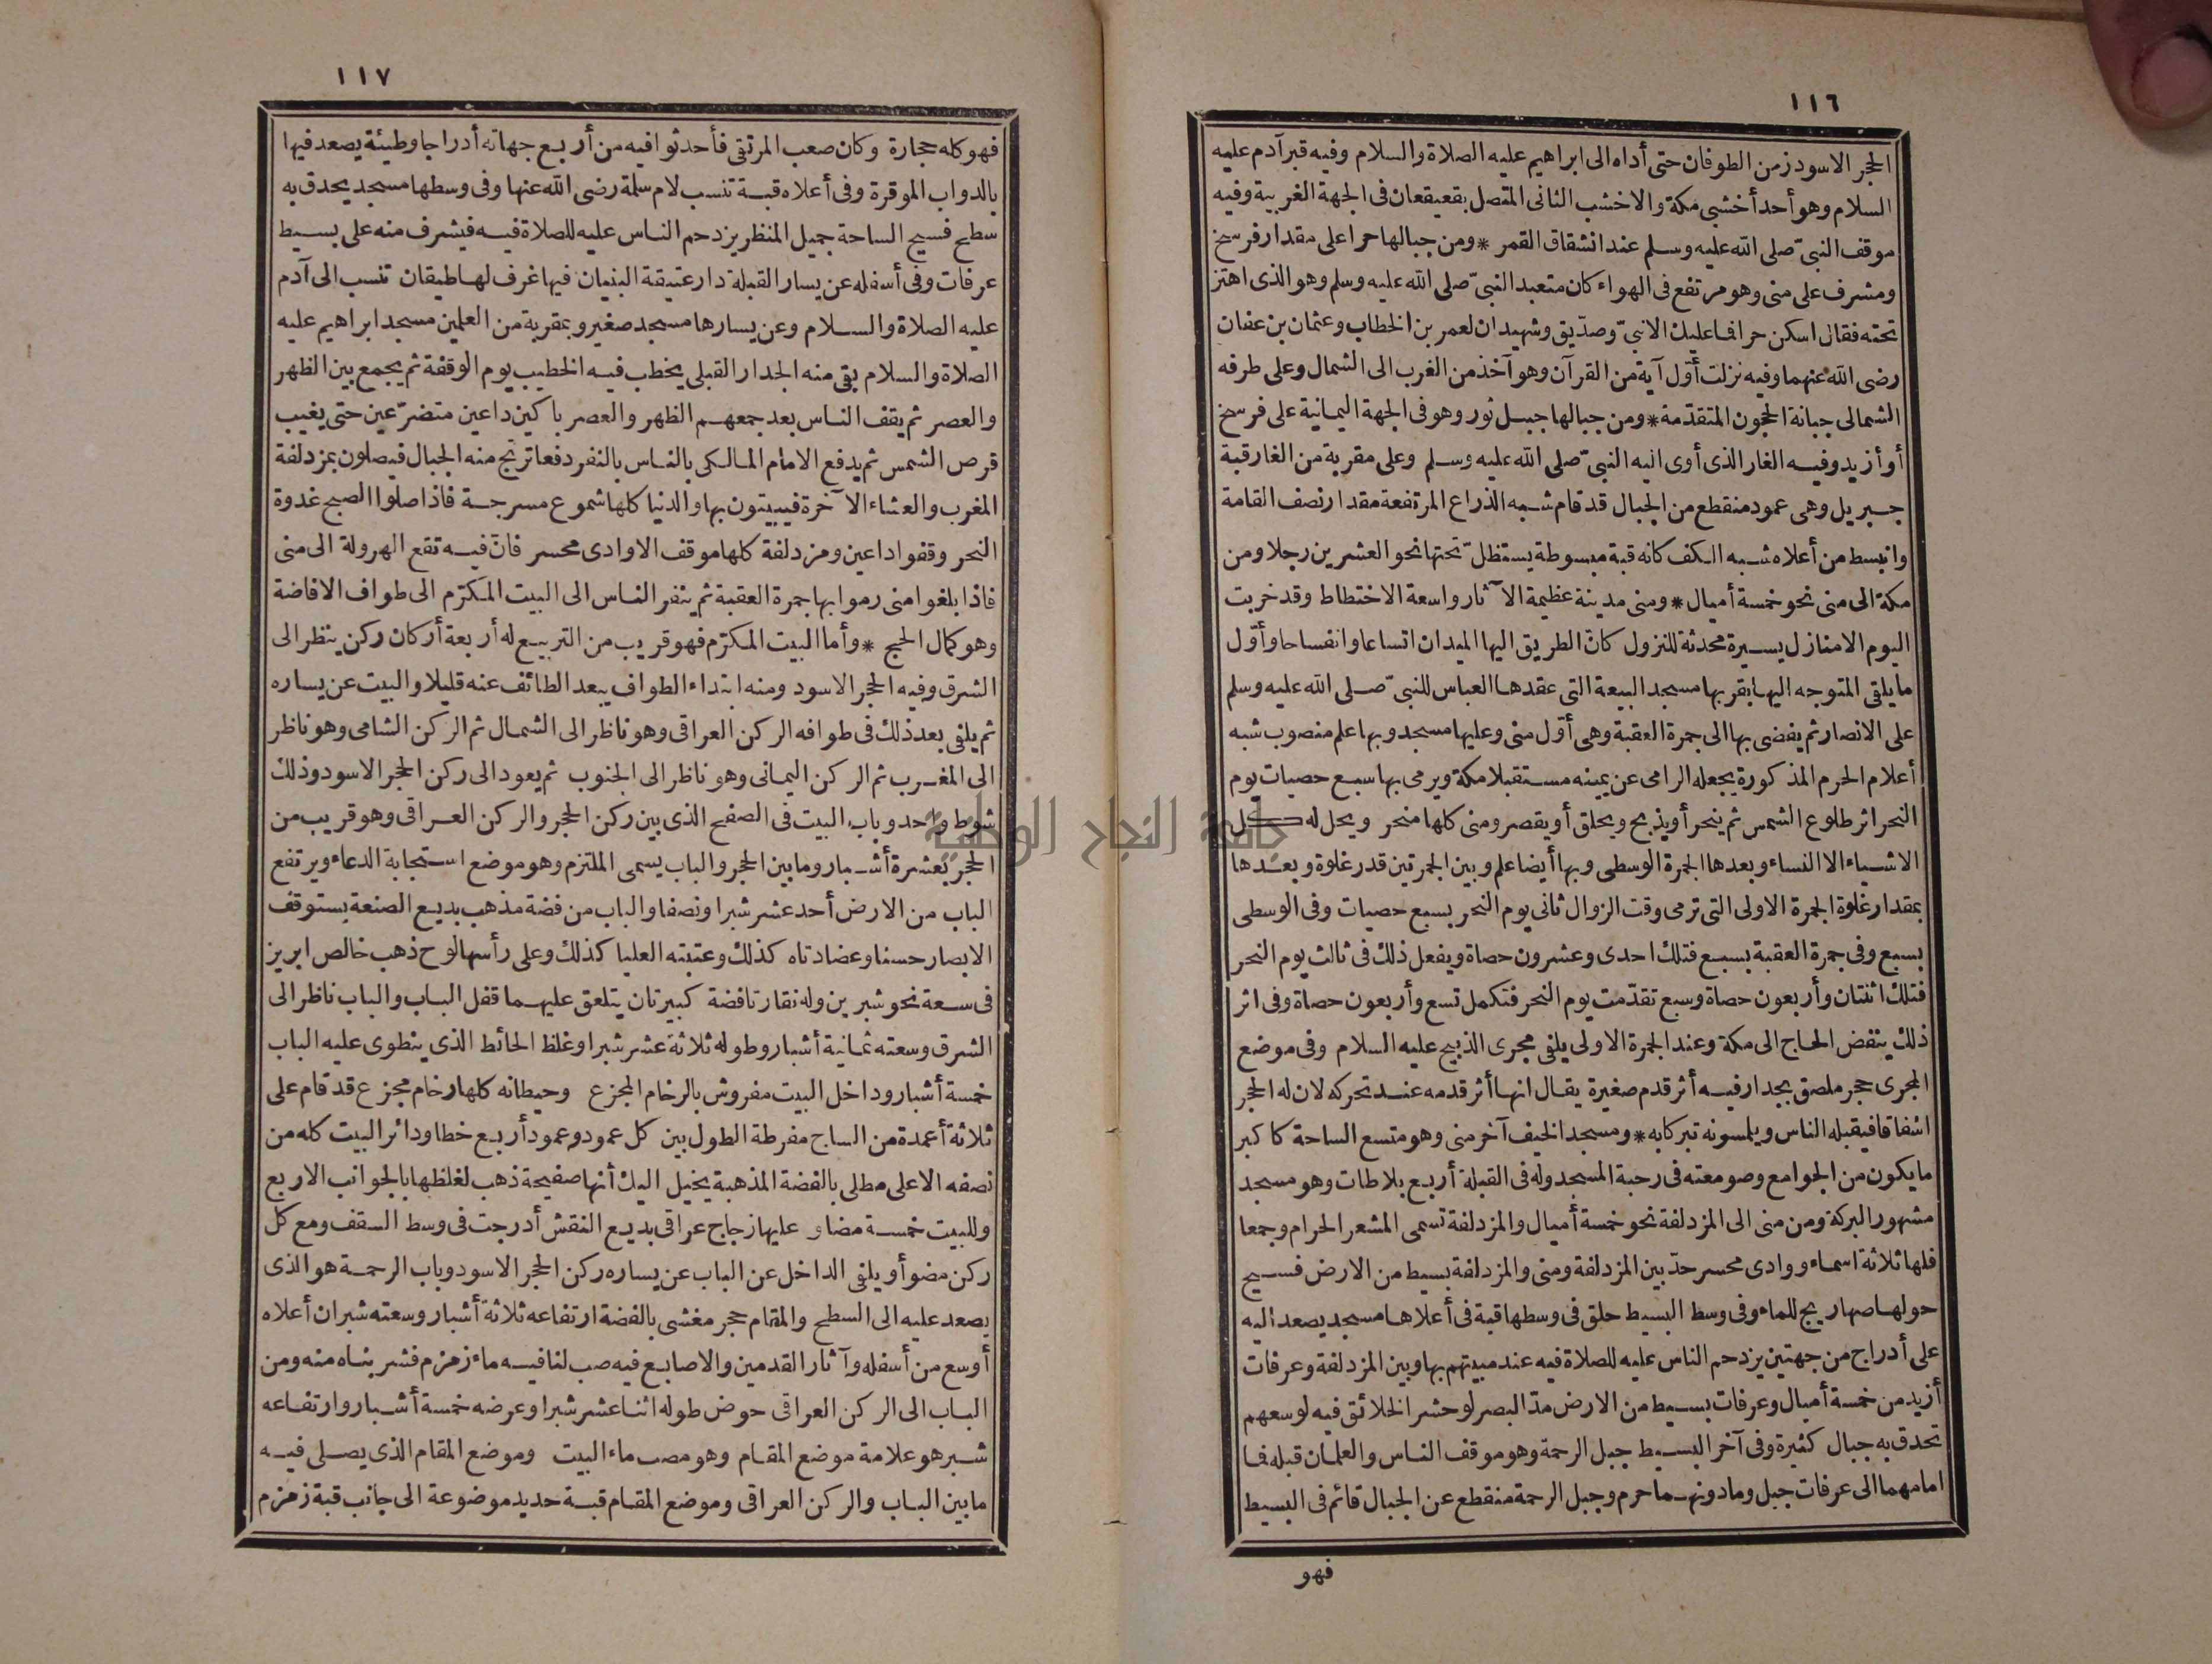 ١١٦
الحجر الاسود زمن الطوفان حتى أداه الى ابراهيم عليه الصلاة والسلام وفيه قبر آدم عليه
السلام وهو أحد أخشبي مكة والاخشب الثانى المتصل بقعيقعان فى الجهة الغربية وفيه
موقف النبىّ صلى الله عليه وسلم عند انشقاق القمر * ومن جبالها حرا على مقدار فرسخ
ومشرف على منى وهو مرتفع فى الهواء كان متعبد النبىّ صلى الله عليه وسلم وهو الذى اهتز
تحته فقال اسكن حرا فما عليك الا نبىّ وصدّيق وشهيدان لعمر بن الخطاب وعثمان بن عفان
رضى الله عنهما وفيه نزلت أوّل آية من القرآن وهو آخذ من الغرب الى الشمال وعلى طرفه
الشمالى جبانة الحجون المتقدّمة * ومن جبالها جبل ثور وهو فى الجهة اليمانية على فرسخ
أو أزيد وفيه الغار الذى أوى اليه النبىّ صلى الله عليه وسلم وعلى مقربة من الغار قبة
جبريل وهى عمود منقطع من الجبال قد قام شبه الذراع المرتفعة مقدار نصف القامة
وانبسط من أعلاه شبه الكف كانه قبة مبسوطة يستظلّ تحتها نحو العشرين رجلا ومن
مكة الى منى نحو خمسة أميال * ومنى مدينة عظيمة الآثار واسعة الاختطاط وقد خربت
اليوم الا منازل يسيرة محدثة للنزول كانّ الطريق اليها الميدان اتساعا وانفساحا وأوّل
ما يلقى المتوجه اليها بقربها مسجد البيعة التى عقدها العباس للنبىّ صلى الله عليه وسلم
على الانصار ثم يفضى بها الى جمرة العقبة وهى أوّل منى وعليها مسجد وبها علم منصوب شبه
أعلام الحرم المذكورة يجعله الرامى عن يمينه مستقبلا مكة ويرمى بها سبع حصيات يوم
النحر اثر طلوع الشمس ثم ينحر أو يذبح ويحلق أو يقصر ومنى كلها منحر ويحل له كل
الاشياء الا النساء وبعدها الجمرة الوسطى وبها أيضا علم وبين الجمرتين قدر غلوة وبعدها
بمقدار غلوة الجمرة الاولى التى ترمى وقت الزوال ثانى يوم النحر بسبع حصيات وفى الوسطى
بسبع وفى جمرة العقبة بسبع فتلك احدى وعشرون حصاة ويفعل ذلك فى ثالث يوم النحر
فتلك اثنتان وأربعون حصاة وسبع تقدّمت يوم النحر فتكمل تسع وأربعون حصاة وفى اثر
ذلك ينفض الحاج الى مكة وعند الجمرة الاولى يلفى مجرى الذبيح عليه السلام وفى موضع
المجرى حجر ملصق بجدار فيه أثر قدم صغيرة يقال انها أثر قدمه عند تحركه لان له الحجر
اشفاقا فيقبله الناس ويلمسونه تبركا به * ومسجد الخيف آخر منى وهو متسع الساحة كاكبر
ما يكون من الجوامع وصومعته فى رحبة المسجد وله فى القبلة أربع بلاطات وهو مسجد
مشهور البركة ومن منى الى المزدلفة نحو خمسة أميال والمزدلفة تسمى المشعر الحرام وجمعا
فلها ثلاثة اسماء ووادى محسر حدّ بين المزدلفة ومنى والمزدلفة بسيط من الارض فسيح
حولها صهاريج للماء وفى وسط البسيط حلق فى وسطها قبة فى أعلاها مسجد يصعد اليه
على أدراج من جهتين يزدحم الناس عليه للصلاة فيه عند مبيتهم بها وبين المزدلفة وعرفات
أزيد من خمسة أميال وعرفات بسيط من الارض مدّ البصر لو حشر الخلائق فيه لوسعهم
تحدق به جبال كثيرة وفى آخر البسيط جبل الرحمة وهو موقف الناس والعلمان قبله فما
امامهما الى عرفات جبل وما دونهما حرم وجبل الرحمة منقطع عن الجبال قائم فى البسيط
فهو
١١٧
فهو كله حجارة وكان صعب المرتقى فأحدثوا فيه من أربع جهاته أدراجا وطيئة يصعد فيها
بالدواب الموقرة وفى أعلاه قبة تنسب لام سلمة رضى الله عنها وفى وسطها مسجد يحدق به
سطح فسيح الساحة جميل المنظر يزدحم الناس عليه للصلاة فيه فيشرف منه على بسيط
عرفات وفى أسفله عن يسار القبلة دار عتيقة البنيان فيها غرف لها طيقان تنسب الى آدم
عليه الصلاة والسلام وعن يسارها مسجد صغير وبمقربة من العلمين مسجد ابراهيم عليه
الصلاة والسلام بقى منه الجدار القبلى يخطب فيه الخطيب يوم الوقفة ثم يجمع بين الظهر
والعصر ثم يقف الناس بعد جمعهم الظهر والعصر باكين داعين متضرّعين حتى يغيب
قرص الشمس ثم يدفع الامام المالكى بالناس بالنفر دفعا ترتج منه الجبال فيصلون بمزدلفة
المغرب والعشاء الآخرة فيبيتون بها والدنيا كلها شموع مسرجة فاذا صلوا الصبح غدوة
النحر وقفوا داعين ومزدلفة كلها موقف الا وادى محسر فانّ فيه تقع الهرولة الى منى
فاذا بلغوا منى رموا بها جمرة العقبة ثم ينفر الناس الى البيت المكرّم الى طواف الافاضة
وهو كمال الحج * وأما البيت المكرّم فهو قريب من التربيع له أربعة أركان ركن ينظر الى
الشرق وفيه الحجر الاسود ومنه ابتداء الطواف يبعد الطائف عنه قليلا والبيت عن يساره
ثم يلفى بعد ذلك فى طوافه الركن العراقى وهو ناظر الى الشمال ثم الركن الشامى وهو ناظر
الى المغرب ثم الركن اليمانى وهو ناظر الى الجنوب ثم يعود الى ركن الحجر الاسود وذلك
شوط واحد وباب البيت فى الصفح الذى بين ركن الحجر والركن العراقى وهو قريب من
الحجر بعشرة أشبار وما بين الحجر والباب يسمى الملتزم وهو موضع استجابة الدعاء ويرتفع
الباب من الارض أحد عشر شبرا ونصفا والباب من فضة مذهب بديع الصنعة يستوقف
الابصار حسنا وعضادتاه كذلك وعتبته العليا كذلك وعلى رأسها لوح ذهب خالص ابريز
فى سعة نحو شبرين وله نقارتا فضة كبيرتان يتلعق عليهما قفل الباب والباب ناظر الى
الشرق وسعته ثمانية أشبار وطوله ثلاثة عشر شبرا وغلظ الحائط الذى ينطوى عليه الباب
خمسة أشبار وداخل البيت مفروش بالرخام المجزع وحيطانه كلها رخام مجزع قد قام على
ثلاثة أعمدة من الساج مفرطة الطول بين كل عمود وعمود أربع خطا ودائر البيت كله من
نصفه الاعلى مطلى بالفضة المذهبة يخيل اليك أنها صفيحة ذهب لغلظها بالجوانب الاربع
وللبيت خمسة مضاو عليها زجاج عراقى بديع النقش أدرجت فى وسط السقف ومع كل
ركن مضوأ ويلفى الداخل عن الباب عن يساره ركن الحجر الاسود وباب الرحمة هو الذى
يصعد عليه الى السطح والمقام حجر مغشى بالفضة ارتفاعه ثلاثة أشبار وسعته شبران أعلاه
أوسع من أسفله وآثار القدمين والاصابع فيه صب لنا فيه ماء زمزم فشربناه منه ومن
الباب الى الركن العراقى حوض طوله اثنا عشر شبرا وعرضه خمسة أشبار وارتفاعه
شبر هو علامة موضع المقام وهو مصب ماء البيت وموضع المقام الذى يصلى فيه
ما بين الباب والركن العراقى وموضع المقام قبة حديد موضوعة الى جانب قبة زمزم
جامعة النجاح الوطنية